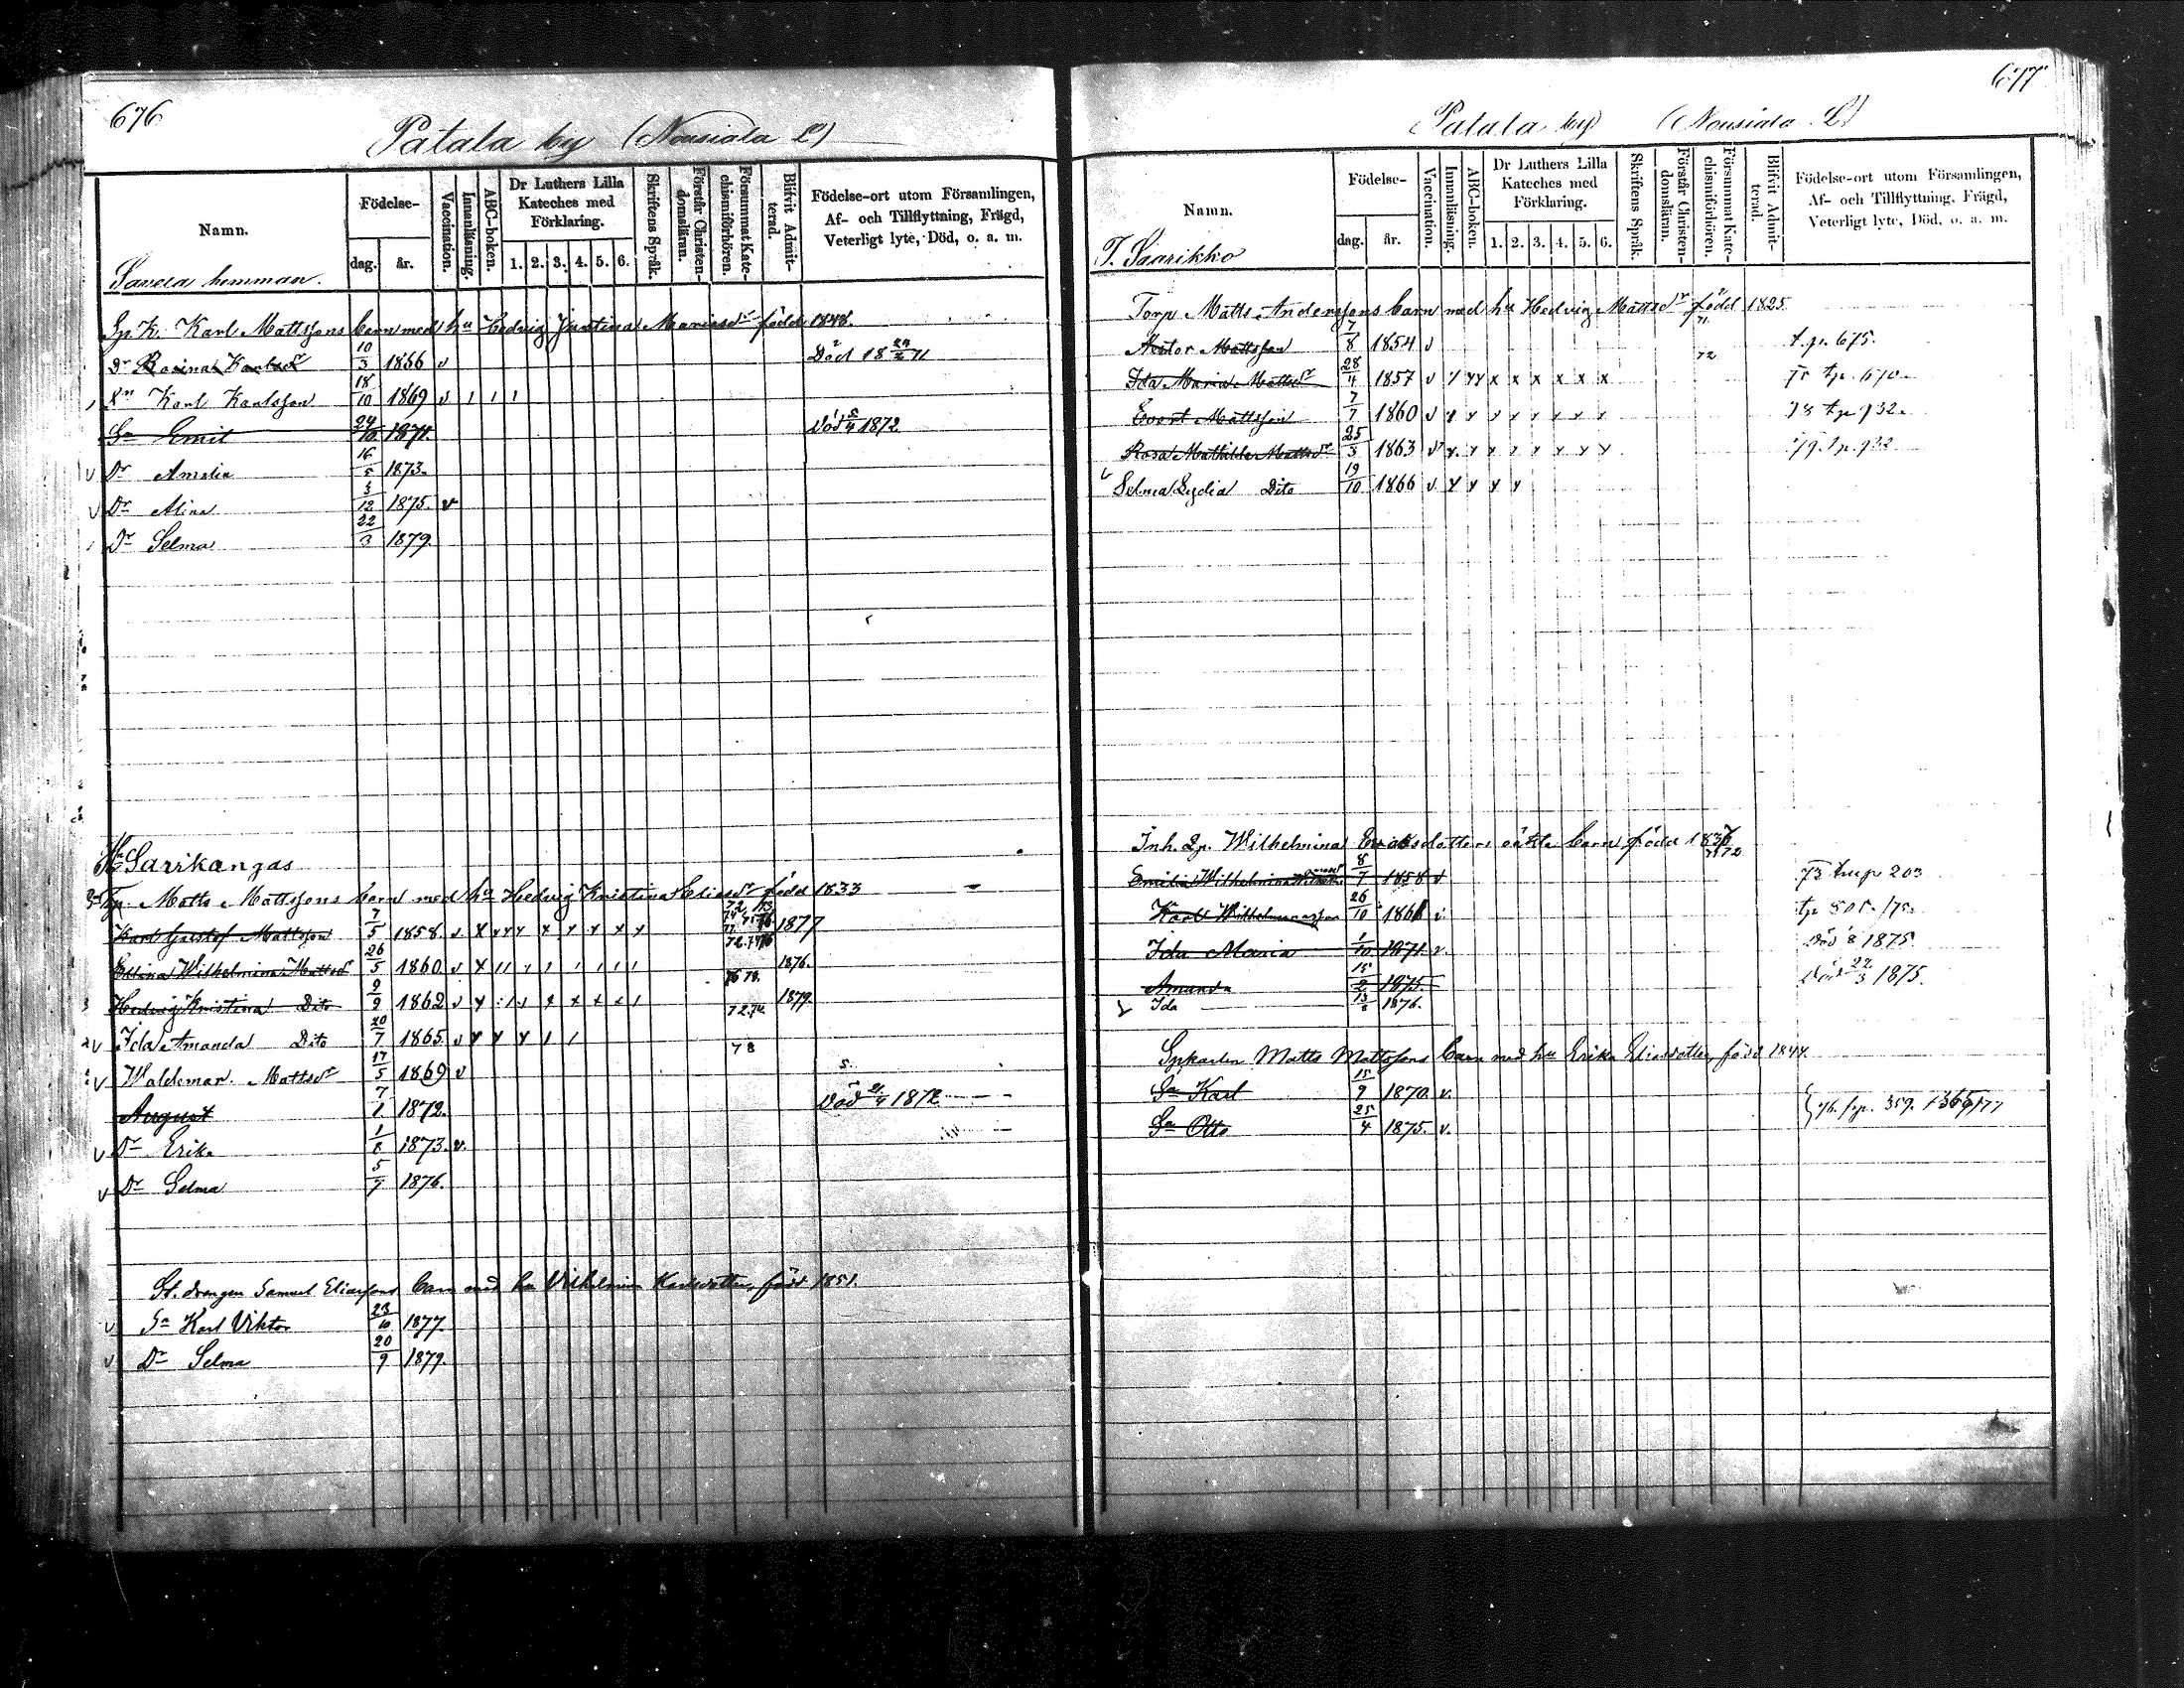 676
Patala by (Nousiala L)
Namn.
Födelse-
dag. år.
Vaccination.
Innanläsning.
ABC-boken.
Dr Luthers Lilla Kateches med Förklaring.
1. 2. 3. 4. 5. 6.
Skriftens Språk.
Förstår Christendomsläran.
Försummat Katechismiförhören.
Blifvit Admitterad.
Födelse-ort utom Församlingen, Af- och Tillflyttning, Frägd, Veterligt lyte, Död, o. a. m.
Savela hemman.
Sp. K. Karl Mattssons barn med hu Hedvig Justina Mariasdr född 1848.
Dr Rosina Karlsdr 10/3 1866 v Död 18 24/2 71
Sn Karl Karlsson 18/10 1869 v 1 1 1
Sn Emil 24/10 1871. Död 5/4 1872
v Dr Amalia 16/5 1873.
v Dr Alina 3/12 1875. v
Dr Selma 22/3 1879.
Sarikangas
Matts Mattssons barn med hu Hedvig Kristina Eliasdr född 1833
Karl Gustaf Mattsson 7/5 1858. v x x x x x x x x x 1877
Wilhelmina Mattsdr 26/5 1860 v x 1 1 1 1 1 1 1 1 1876.
Hedvig Kristina Dito 9/9 1862 v x 1879.
v Ida Amanda Dito 20/7 1865. v x x x 1 1 72.74.
v Waldemar Mattsdr 17/5 1869 v 78
August 7/1 1872. Död 21/4 1872
v Dr Erika 1/8 1873. v.
v Dr Selma 5/7 1876.
St. drengen Samuel Eliassons barn med hu Vilhelmina Karlsdotter, född 1851.
v Sn Karl Viktor 23/10 1877.
v Dr Selma 20/9 1879.
677
Patala by (Nousiala L)
Namn.
Födelse-
dag. år.
Vaccination.
Innanläsning.
ABC-boken.
Dr Luthers Lilla Kateches med Förklaring.
1. 2. 3. 4. 5. 6.
Skriftens Språk.
Förstår Christendomsläran.
Försummat Katechismiförhören.
Blifvit Admitterad.
Födelse-ort utom Församlingen, Af- och Tillflyttning, Frägd, Veterligt lyte, Död, o. a. m.
T. Saarikko
Torp Matts Anderssons barn med hu Hedvig Mattsdr född 1825
Nestor Mattsson 7/8 1854 v 71 t.p. 675.
Ida Maria Mattsdr 28/4 1857 v 1 x x x x x x x x 72 75 tp. 670.
Evert Mattsson 7/7 1860 v x x x x x x x x 78 tp 932.
Rosa Mathilda Mattsdr 25/3 1863 v x x x x x x x x 79. tp. 932
Selma Lydia Dito 19/10 1866 v x x x x
Inh. Wilhelmina Eriksdotters oäkta barn född 1836
Emilia Wilhelmina 8/7 1858 v 73 203
Karl Wilhelminasson 26/10 tp 805. /78.
Ida Maria 1/10 1871. v. Död 1875.
Amanda 15/2 1875. Död 22/3 1875.
Ida 13/8 1876.
Spkarlen Matts Mattssons barn med hu Erika Eliasdotter, född 1844.
Sn Karl 15/9 1870. v.
76. p. 359.
Sn Otto 25/4 1875. v.